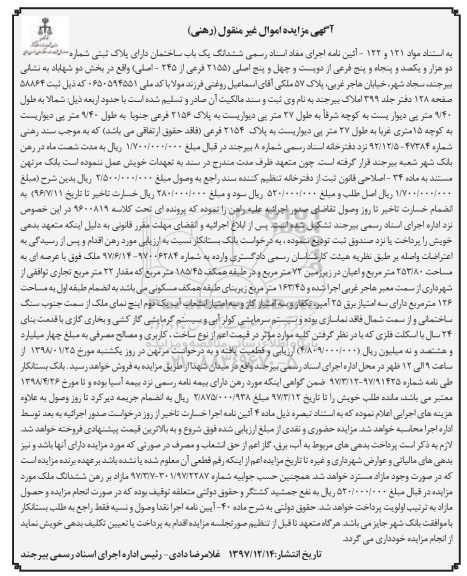 آگهی مزایده اموال غیر منقول (رهنی)
به استناد مواد ۱۲۱ و ۱۲۲ - آئین نامه اجرای مفاد اسناد رسمی ششدانگ یک باب ساختمان دارای پلاک ثبتی شماره
دو هزار و یکصد و پنجاه و پنج فرعی از دویست و چهل و پنج اصلی (۲۱۵۵ فرعی از ۲۴۵ - اصلی) واقع در بخش دو شهاباد به نشانی
بیرجند، سجاد شهر، خیابان هاجر غربی، پلاک ۵۷ ملکی آقای اسماعیل روغنی فرزند مولا با کد ملی ۰۶۵۰۵۹۴۵۵۱ که ذیل ثبت ۵۸۸۶۴
صفحه ۱۲۸ دفتر جلد ۳۹۹ املاک بیرجند به نام وی ثبت و سند مالکیت آن صادر و تسلیم شده است با حدود اربعه ذیل: شمالا به طول
۹/۴۰ متر پی دیوار یست به کوچه شرقاً به طول ۲۷ متر پی دیواریست به پلاک ۲۱۵۶ فرعی جنوبا به طول ۹/۴۰ متر پی دیواریست
به کوچه ۱۵متری غربا به طول ۲۷ متر پی دیواریست به پلاک ۲۱۵۴ فرعی (فاقد حقوق ارتفاقی می باشد) که به موجب سند رهنی
شماره ۴۷۳۸۴-۹۲/۱۲/۵ نزد دفترخانه اسناد رسمی شماره ۸ بیرجند در قبال مبلغ ۱/۷۰۰/۰۰۰/۰۰۰ ریال به مدت شصت ماه در رهن
بانک شهر شعبه بیرجند قرار گرفته است. چون متعهد ظرف مدت مندرج در سند به تعهدات خویش عمل ننموده است بانک مرتهن
مستند به ماده ۳۴ - اصلاحی قانون ثبت از دفترخانه تنظیم کننده سند راجع به وصول مبلغ ۲/۵۰۰/۰۰۰/۰۰۰ ریال بدین شرح (مبلغ
۱/۷۰۰/۰۰۰/۰۰۰ ریال اصل طلب و مبلغ ۵۲۰/۰۰۰/۰۰۰ ریال سود و مبلغ ۲۸۰/۰۰۰/۰۰۰ ریال خسارت تاخیر تا تاریخ ۹۶/۷/۱۱) به
انضمام خسارت تاخیر تا روز وصول تقاضای صدور اجرائیه علیه راهن را نموده که پرونده ای تحت کلاسه ۹۶۰۰۸۱۹ در این خصوص
نزد اداره اجرای اسناد رسمی بیرجند تشکیل شده است. پس از ابلاغ اجرائیه و انقضای مهلت مقرر قانونی به دلیل اینکه متعهد بدهی
خویش را پرداخت یا نزد صندوق ثبت تودیع ننموده، به درخواست بانک بستانکار نسبت به ارزیابی مورد رهن اقدام و پس از رسیدگی به
اعتراضات واصله بر طبق نظریه هیئت کارشناسان رسمی دادگستری وارده به شماره ۹۷۰۰۶۲۸۴-۹۷/۶/۱۴ ملک فوق با عرصه ای به
مساحت ۲۵۳/۸۰ متر مربع و اعیان در زیرزمین ۷۲ متر مربع و در طبقه همکف ۱۸۵/۴۵ متر مربع که مقدار ۲۲ متر مربع تجاری توافقی از
شهرداری از سمت معبر هاجر غربی اجرا شده و ۱۶۳/۴۵ متر مربع زیربنای طبقه همکف مسکونی می باشد به انضمام طبقه اول به مساحت
۱۲۶ مترمربع دارای سه امتیاز برق ۲۵ آمپر تکفاز و سه امتیاز گاز و سه امتیاز انشعاب آب یک دوم اینچ نمای ملک از سمت جنوب سنگ
ساختمانی و از سمت شمال فاقد نماسازی بوده و سیستم سرمایشی کولر آبی و سیستم گرمایشی گاز کشی و بخاری گازی با قدمت بنای
۲۴ سال با اسکلت فلزی که با در نظر گرفتن کلیه موارد مؤثر در قیمت اعم از نوع ساخت، کاربری و مصالح مصرفی به مبلغ چهار میلیارد
و هشتصد و نه میلیون ریال (۴/۸۰۹/۰۰۰/۰۰۰) ارزیابی و قطعیت یافته و به درخواست مرتهن در روز یکشنبه مورخ ۱۳۹۸/۰۱/۲۵ از
ساعت ۹ الی ۱۲ ظهر در محل اداره اجرای اسناد رسمی بیرجند واقع در میدان شهدا از طریق مزایده به فروش خواهد رسید. بانک بستانکار
طی نامه شماره ۹۷/۹۱۴۲۵-۹۷/۳/۱۲ ضمن گواهی اینکه مورد رهن دارای بیمه نامه رسمی نزد بیمه آسیا بوده و تا مورخ ۱۳۹۸/۴/۲۶
معتبر می باشد، مانده طلب خویش را تا تاریخ ۹۷/۳/۱۲ مبلغ ۲/۸۷۵/۰۰۰/۹۳۸ ریال به انضمام جریمه دیرکرد تا روز وصول به علاوه
هزینه های اجرایی اعلام نموده که به استناد تبصره ذیل ماده ۴ آئین نامه اجرا خسارت تاخیر از روز درخواست صدور اجرائیه به بعد توسط
اداره اجرا محاسبه خواهد شد. مزایده حضوری و نقدی از مبلغ ارزیابی شده فوق شروع و به بالاترین قیمت پیشنهادی فروخته خواهد شد.
لازم به ذکر است پرداخت بدهی های مربوط به آب، برق، گاز اعم از حق انشعاب و مصرف در صورتی که مورد مزایده دارای آنها باشد و نیز
بدهی های مالیاتی و عوارض شهرداری و غیره تا تاریخ مزایده اعم از اینکه رقم قطعی آن معلوم شده یا نشده باشد بر عهده برنده مزایده است
که در صورت وجود مازاد مسترد خواهد شد. همچنین حسب جوابیه شماره ۳۰۱/۹۷/۲۲۸۷-۹۷/۳/۷ مازاد بر رهن ششدانگ ملک مورد
مزایده در قبال مبلغ ۵۲۰/۰۰۰/۰۰۰ ریال به نفع جمشید کشتگر و حقوق دولتی متعلقه توقیف بوده که در صورت انجام مزایده و حصول
مازاد به ترتیب اولویت پرداخت خواهد شد. حقوق دولتی به شرح ماده ۴۰-آیین نامه اجرا نقدا وصول و نسیه فقط راجع به طلب بستانکار
با موافقت بانک شهر جایز می باشد. هر گاه متعهد تا قبل از تنظیم صورتجلسه مزایده اقدام به پرداخت یا تعیین تکلیف بدهی خویش نماید
از انجام مزایده خودداری می گردد.
تاریخ انتشار: ۱۳۹۷/۱۲/۱۴ غلامرضا دادی - رئیس اداره اجرای اسناد رسمی بیرجند